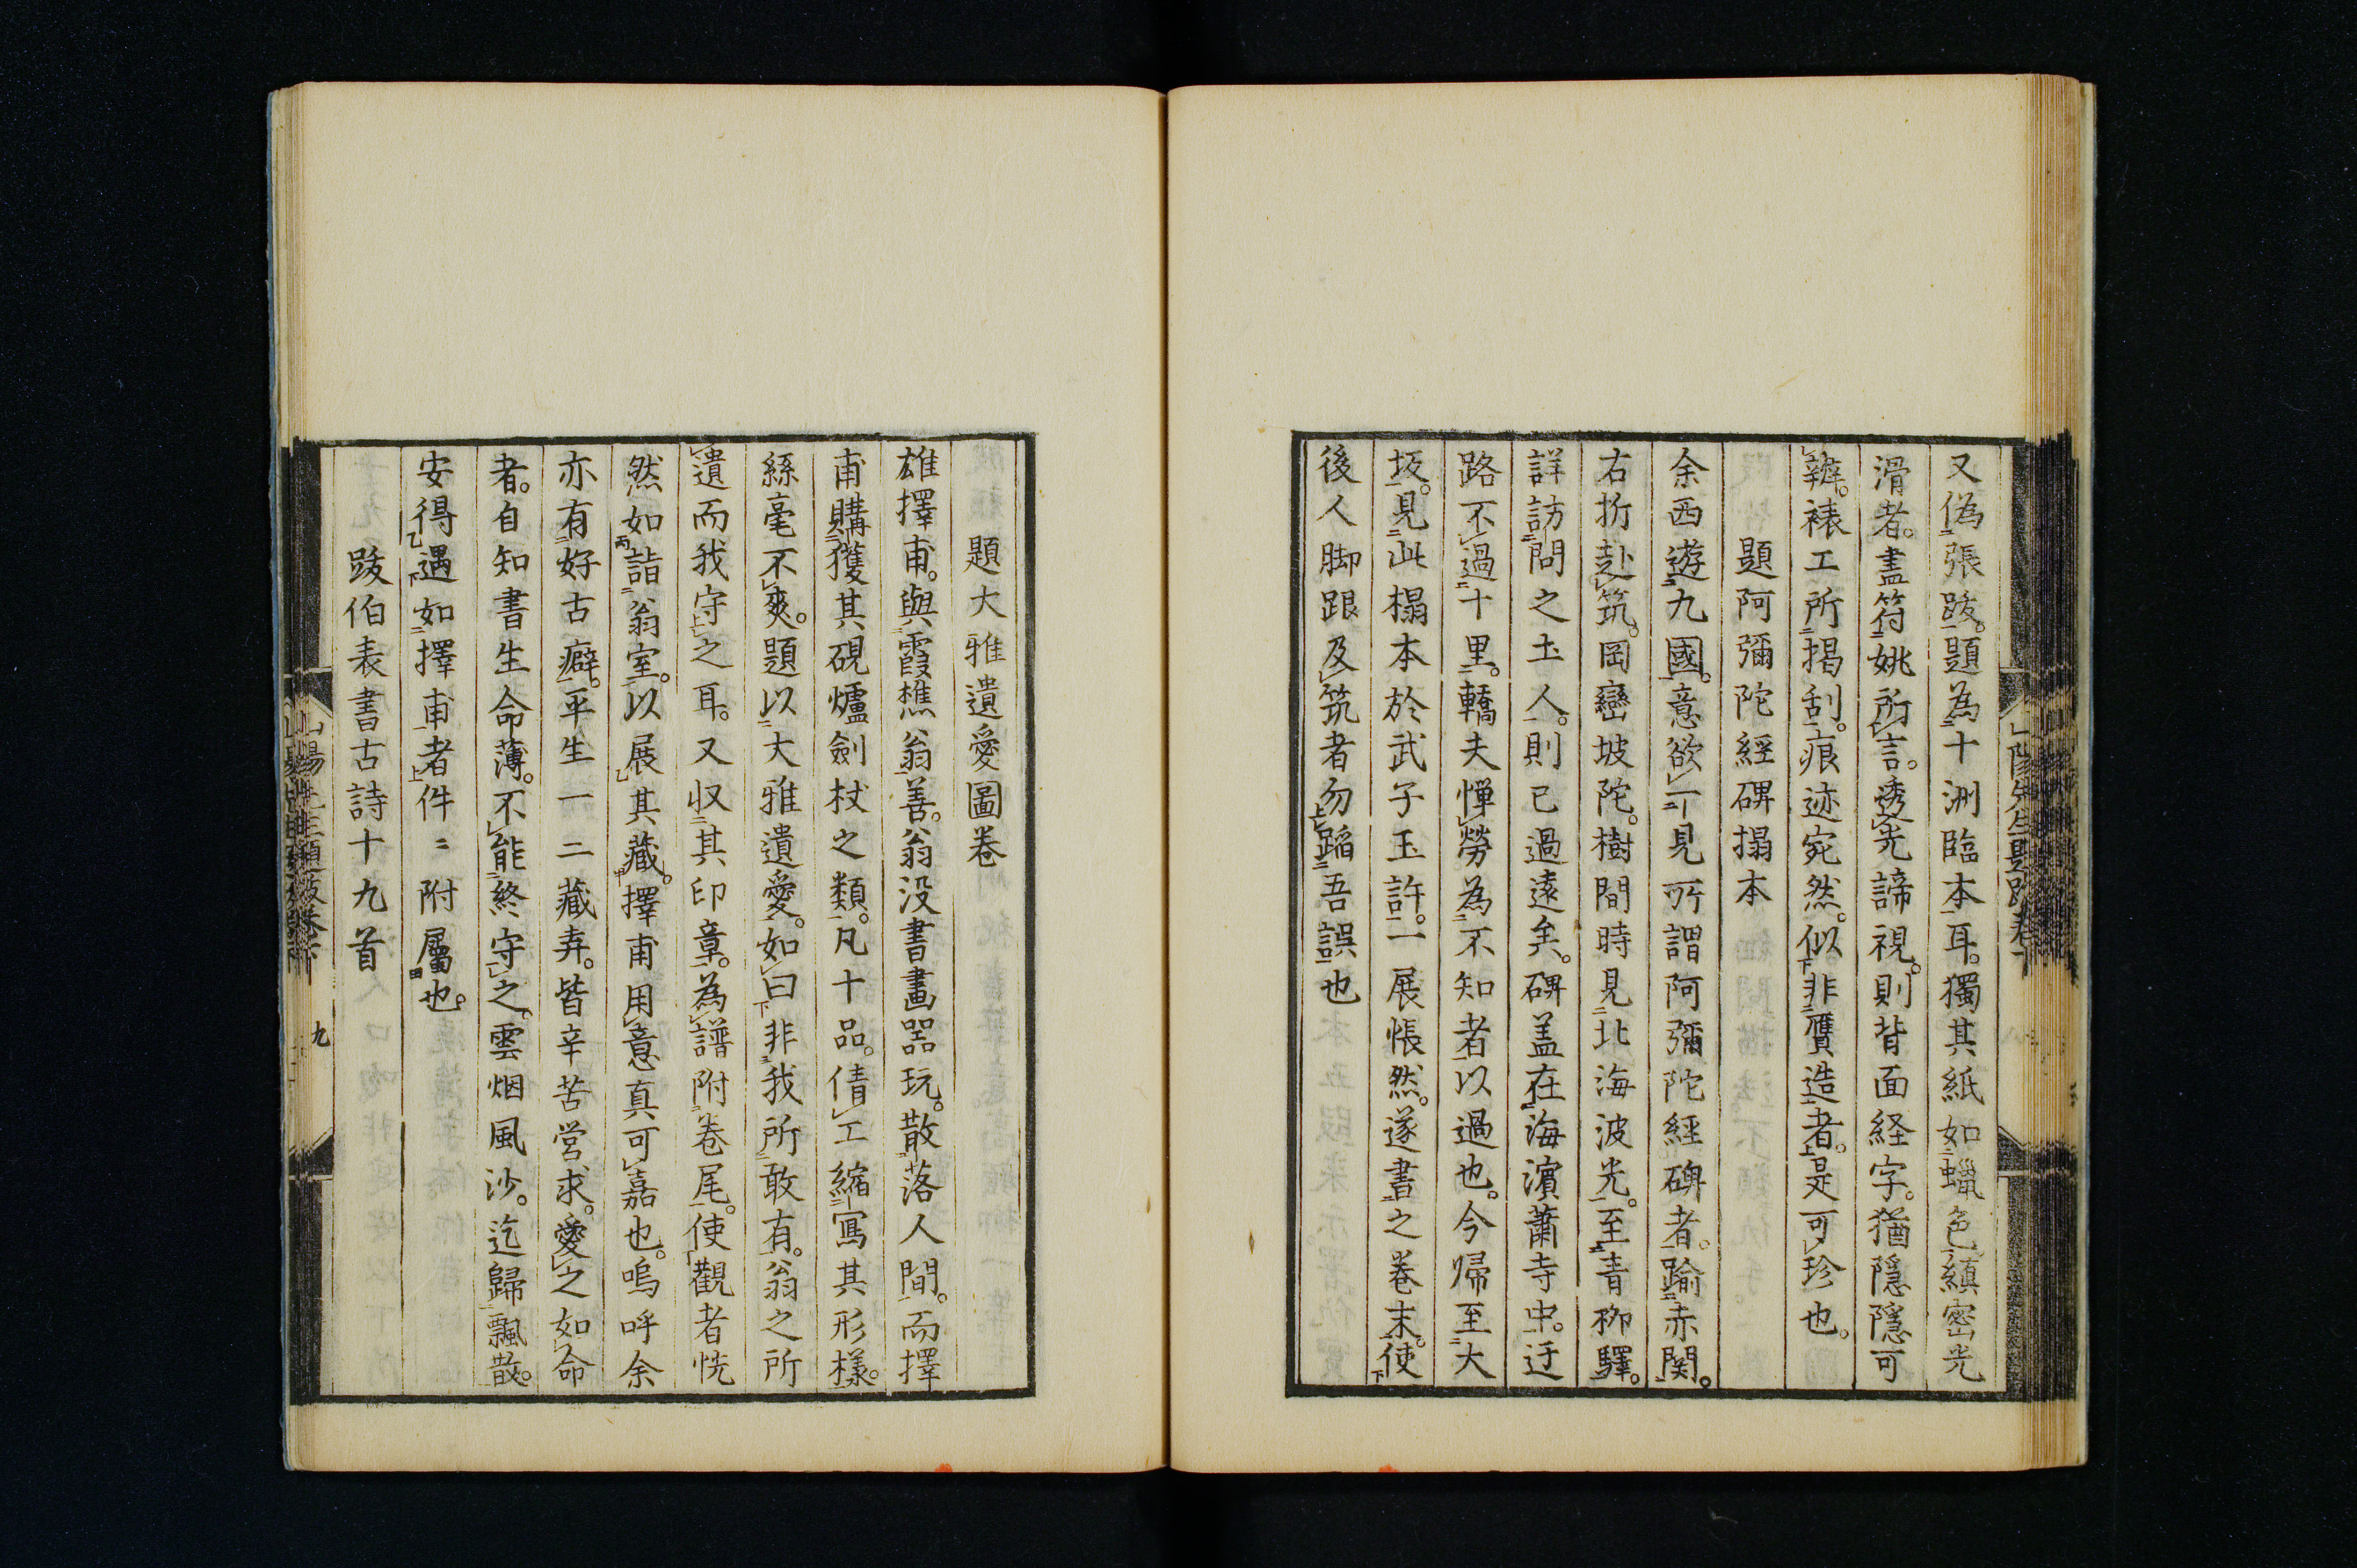 又偽張跋。題為十洲臨本耳。獨其紙如蠟色縝密光
滑者。盡符姚所言。透光諦視。則背面経字。猶隠隠可
辨。裱工所掲刮。痕迹宛然。似非贋造者。是可珍也。
題阿彌陀經碑搨本
余西遊九國。意欲一見所謂阿彌陀經碑者。踰赤関。
右折赴筑。岡巒坡陀。樹間時見北海波光。至青柳驛。
詳訪問之土人。則已過遠矣。碑盖在海濵蕭寺中。迂
路不過十里。轎夫憚勞為不知者以過也。今帰至大
坂。見此榻本於武子玉許。一展悵然。遂書之巻末。使
後人脚跟及筑者勿蹈吾誤也
題大雅遺愛圖巻
雄擇甫。與霞樵翁善。翁没書畫器玩。散落人間。而擇
甫購獲其硯爐劍杖之類。凡十品。倩工縮冩其形樣。
絲毫不爽。題以大雅遺愛。如曰非我所敢有。翁之所
遺而我守之耳。又収其印章。為譜附巻尾。使觀者恍
然如詣翁室。以展其藏。擇甫用意真可嘉也。嗚呼余
亦有好古癖。平生一二藏弆。皆辛苦営求。愛之如命
者。自知書生命薄。不能終守之。雲烟風沙。迄歸飄散。
安得遇如擇甫者件〻附屬也。
跋伯表書古詩十九首
九